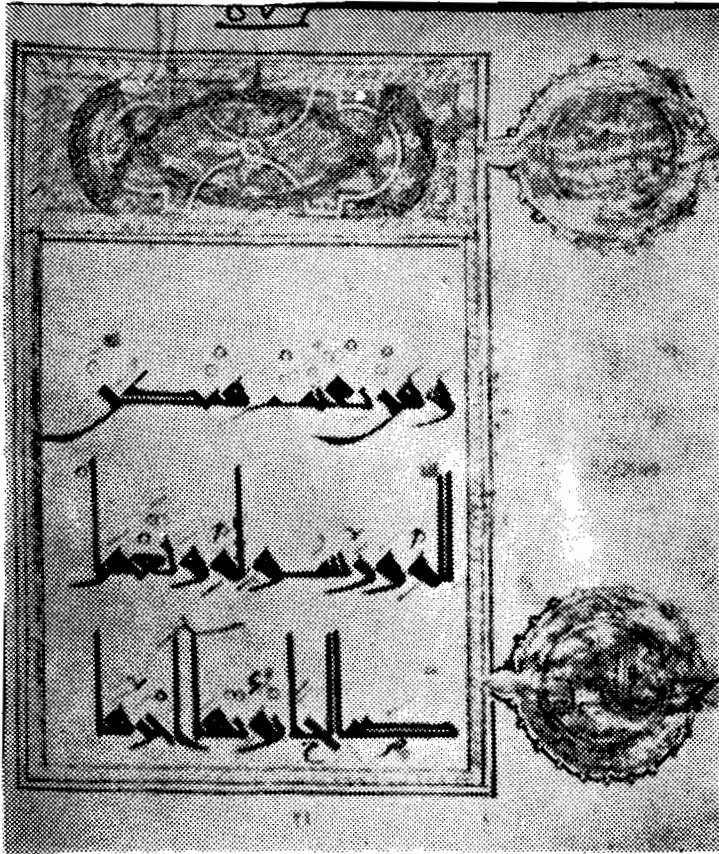 ومن يقنت منكن
لله ورسوله وتعمل
صالحا نؤتها أجرها